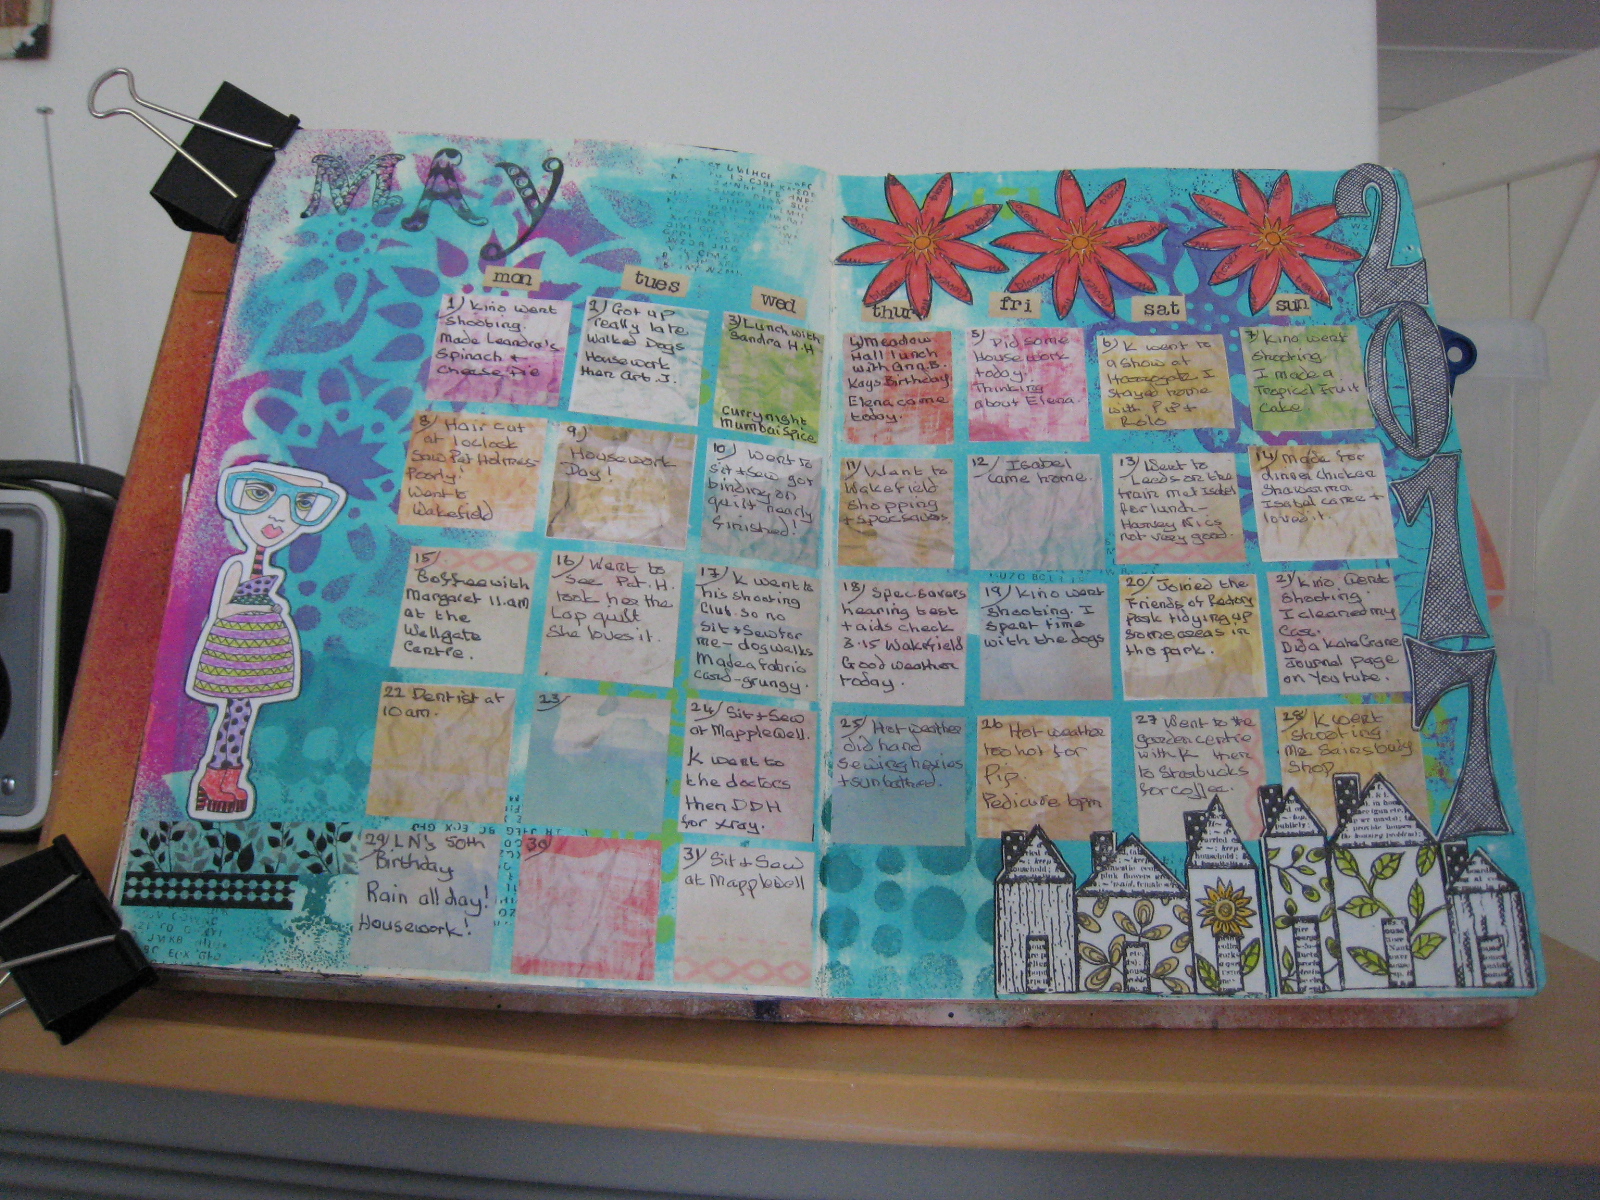 MAY
2017
mon
tues
wed
thur
fri
sat
sun
1) Kino went
shooting.
Made Leandra's
Spinach +
Cheese Pie
2) Got up
really late
Walked Dogs
Housework
then Art. J.
3) Lunch with
Sandra H.H
Curry night
Mumbai Spice.
4) Meadow
Hall lunch
with Ann.B.
Kays Birthday.
Elena came
today.
5) Did some
Housework
today.
Thinking
about Elena.
6) K went to
a show at
Harrogate. I
stayed home
with Pip +
Rolo
7) Kino went
shooting
I made a
Tropical Fruit
Cake.
8) Hair cut
at 1 oclock
Saw Pat Holmes-
Poorly.
Went to
Wakefield
9)
Housework
Day!
10) Went to
Sit + Sew got
binding on
quilt nearly
finished!
11) Went to
Wakefield
Shopping
+ Specsavers
12) Isabel
came home.
13) Went to
Leeds on the
train met Isabel
for lunch-
Harvey Nics
not very good.
14) Made for
dinner chicken
Shawarma
Isabel came +
loved it.
15)
Coffee with
Margaret 11.am
at the
Wellgate
Centre.
16) Went to
see Pat. H.
took her the
Lap quilt
She loves it.
17) K went to
his shooting
Club. So no
Sit + Sew for
me - dog walks
Made a fabric
card - grungy.
18) Specsavers
hearing test
+ aids check
3.15 Wakefield
Good weather
today.
19) Kino went
shooting. I
spent time
with the dogs
20) Joined the
Friends of Rectory
Park tidying up
some areas in
the park.
21) Kino. Went
Shooting.
I cleaned my
Case.
Did a Kate Crane
Journal page
on YouTube.
22 Dentist at
10am.
23)
24) Sit + Sew
at Mapplewell.
K went to
the doctors
then DDH
for xray.
25) Hot weather
did hand
sewing hexies
+ sunbathed.
26 Hot weather
too hot for
Pip.
Pedicure 6pm
27 Went to the
garden centre
with K then
to Starbucks
for coffee.
28) K went
shooting
me Sainsburys
Shop
29) LN's 50th
Birthday
Rain all day!
Housework!
30)
31) Sit + Sew
at Mapplewell